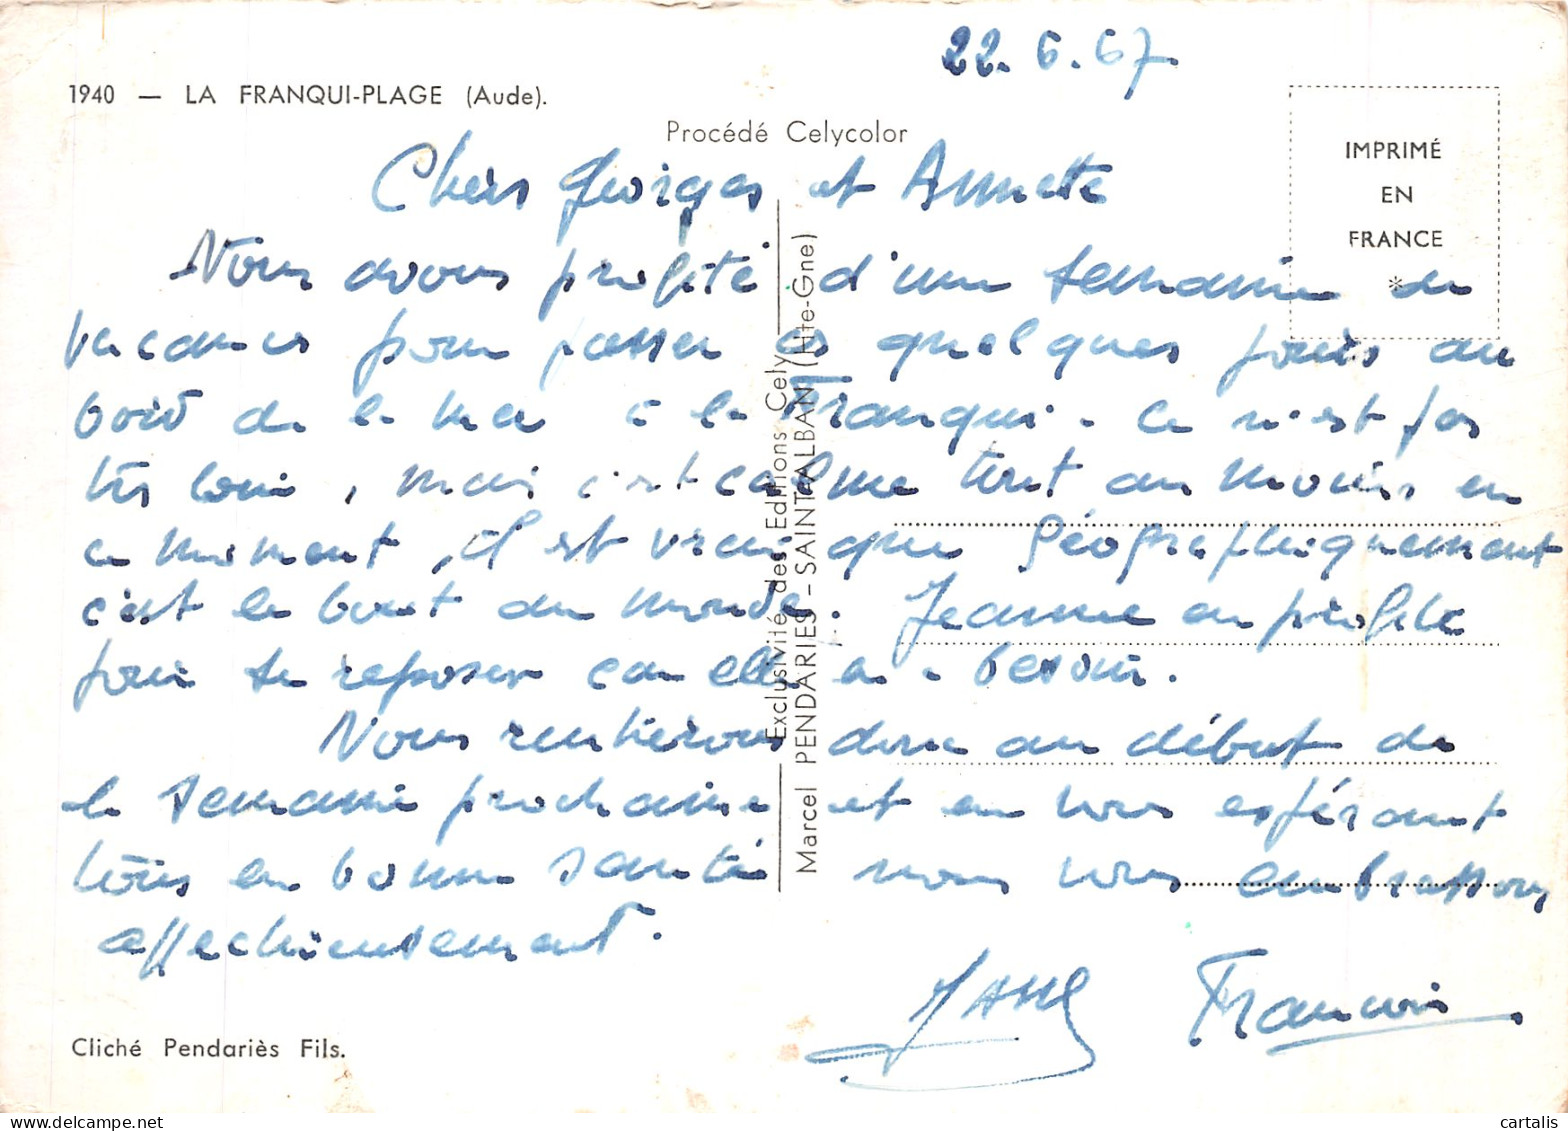 22.6.67
1940 — LA FRANQUI-PLAGE (Aude).
Procédé Celycolor
IMPRIMÉ
EN
FRANCE
*
Chers Georges et Annette
Nous avons profité d'une semaine de
vacances pour passer ces quelques jours au
bord de la mer à la Franqui. Ce n'est pas
très loin, mais c'est calme tout au moins en
ce moment, il est vrai que géographiquement
c'est le bout du monde. Jeanne en profite
pour se reposer car elle en a besoin.
Nous rentrerons donc au début de
la semaine prochaine et en vous espérant
tous en bonne santé nous vous embrassons
affectueusement.
François
Exclusivité des Editions Cely
Marcel PENDARIES - SAINT-ALBAN (Hte-Gne)
Cliché Pendariès Fils.
cartalis